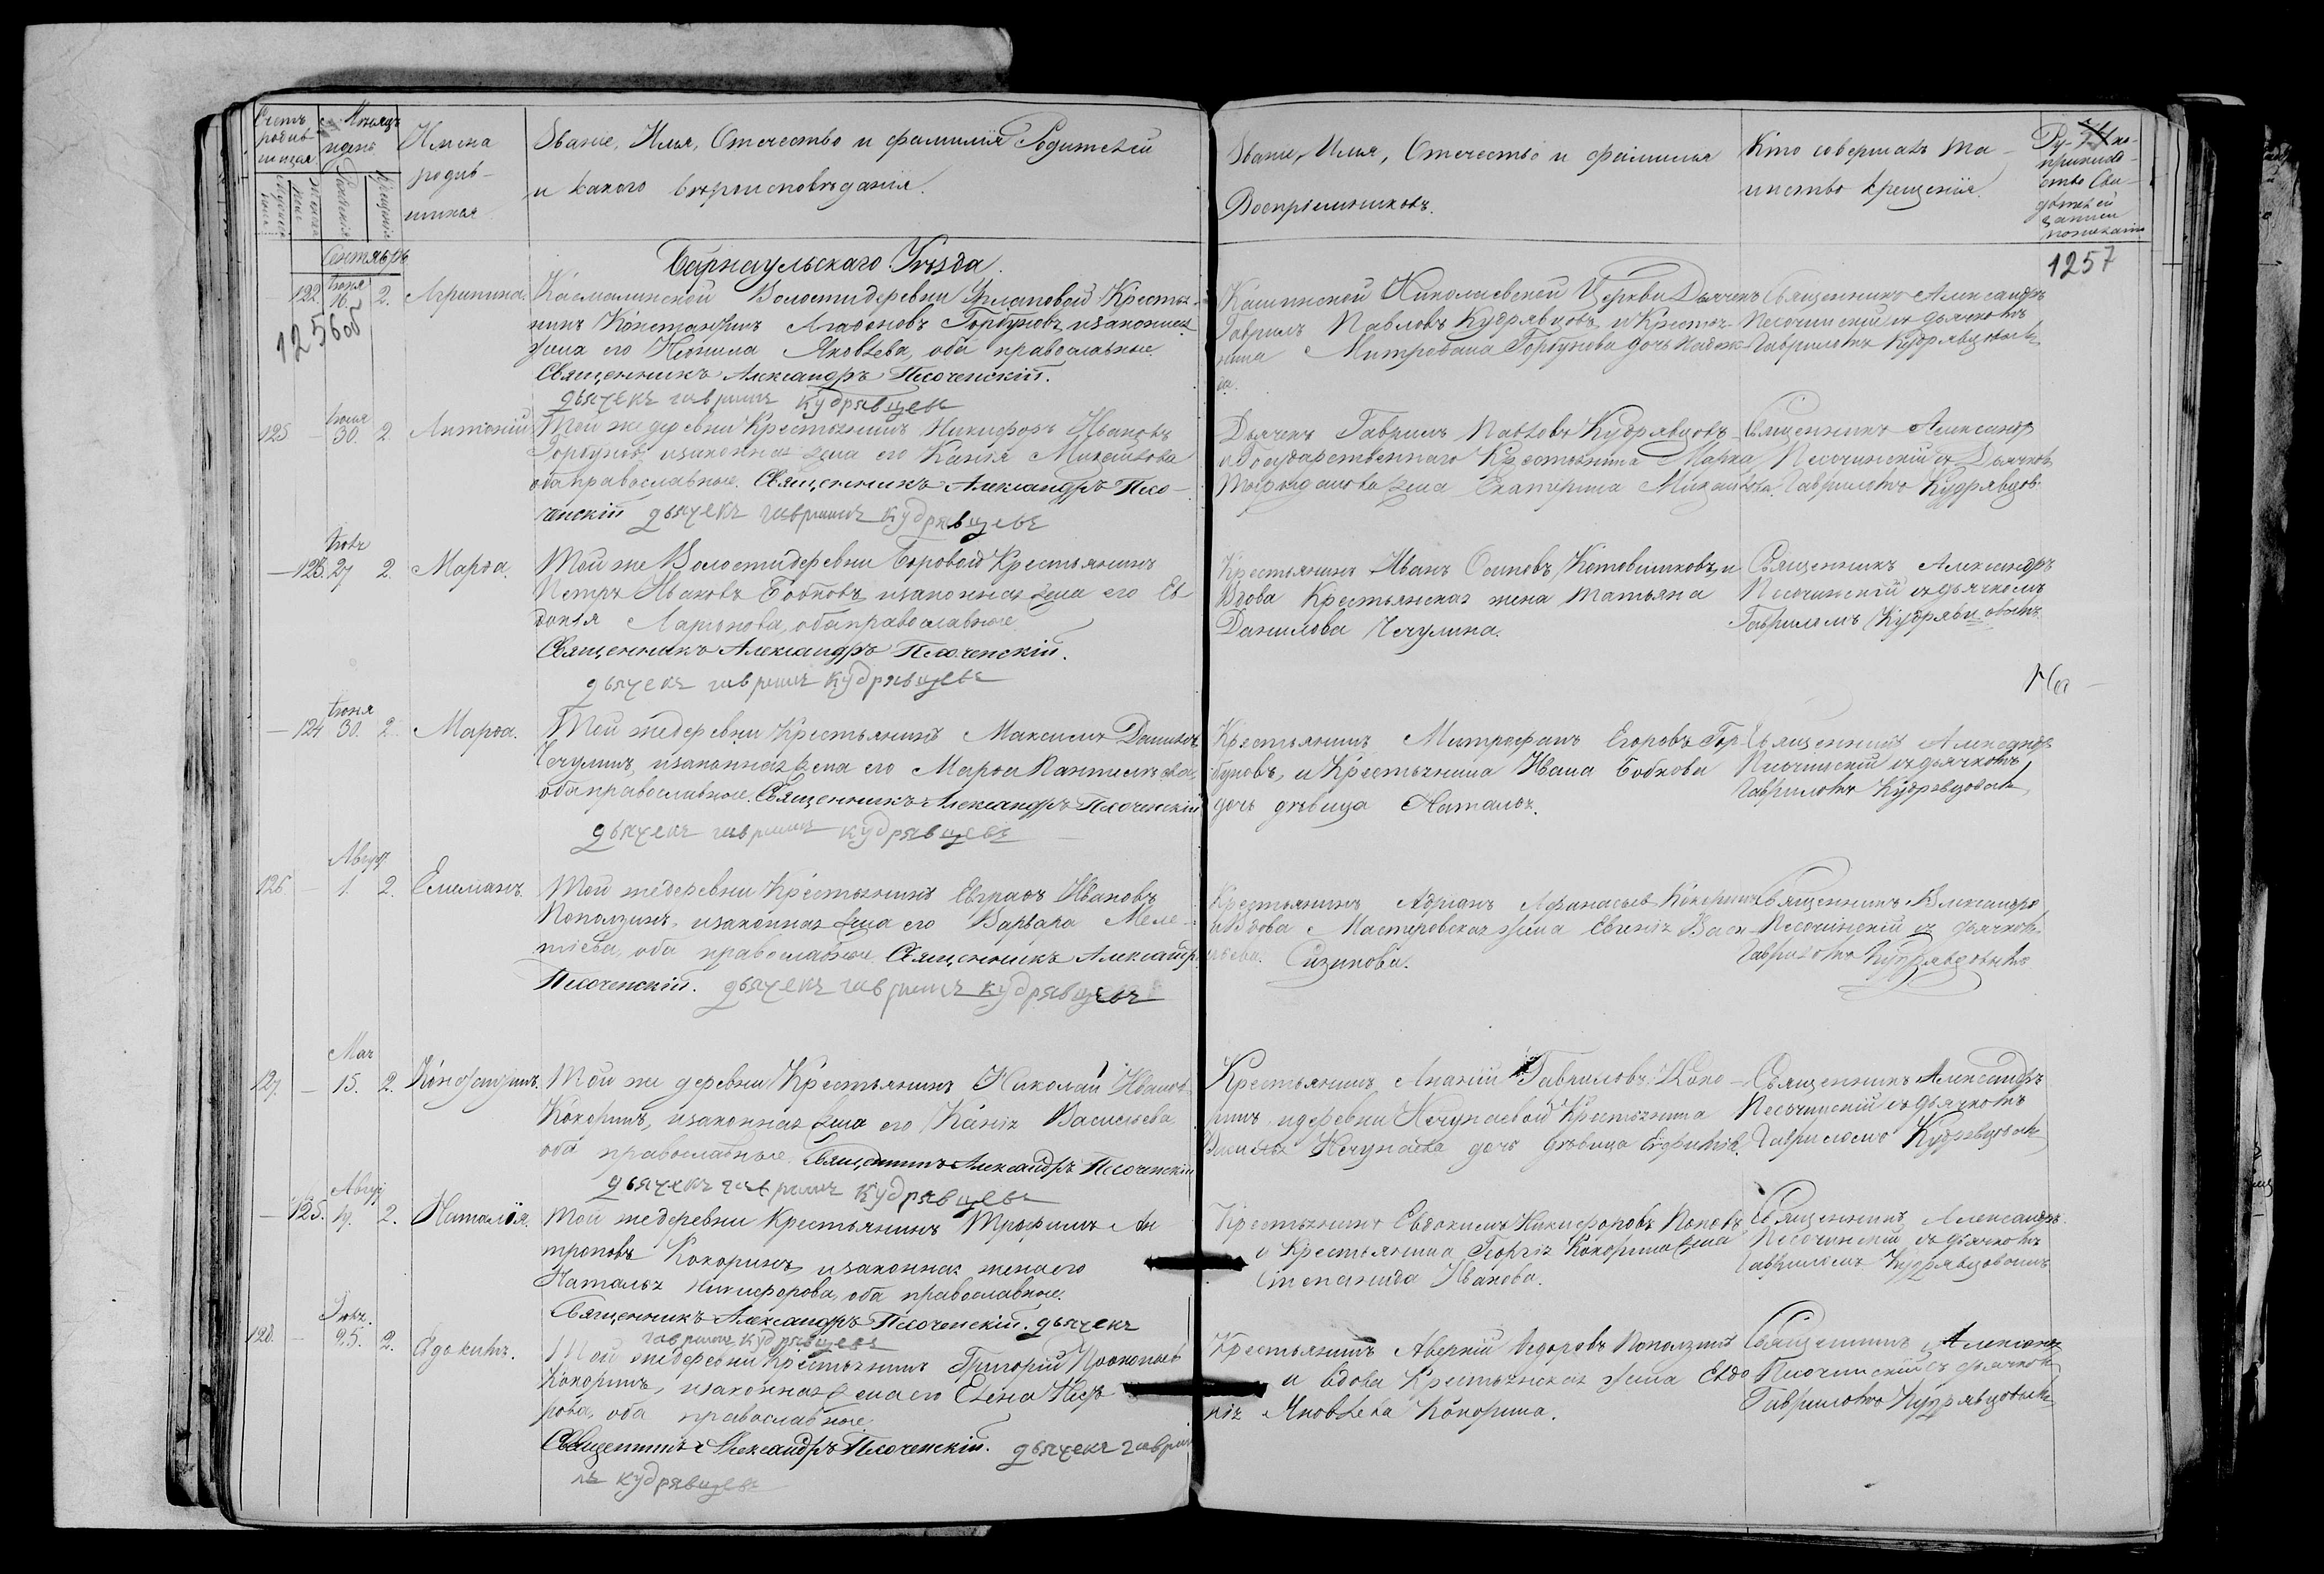 Счетъ родив-шихся
Мѣсяцъ и день
Имена родив-шихся
Званіе, Имя, Отечество и фамилія Родителей
и какого вѣроисповѣданія.
Званіе, Имя, Отечество и фамилія
Воспріемниковъ.
Кто совершалъ та-
инство крещенія.
Сентябрь
Барнаульскаго Уѣзда.
1257
122. Іюня 16. 2. Агрипина.
1256об
Касмалинской Волости деревни Крестья-
нинъ Константинъ Агафоновъ Горбуновъ, и законная
жена его Неонила Яковлева, оба православные.
Священникъ Александръ Песоченскій.
дьячекъ гаврилъ кудрявцевъ
Николаевской Церкви Дьячекъ
Гаврилъ Павловъ Кудрявцовъ и Крестья-
нина Митрофана Горбунова дочь Надеж-
да.
Священникъ Александръ
Песочинскій съ дьячкомъ
Гавриломъ Кудрявцовымъ
125 30. 2 Антоній
Той же деревни Крестьянинъ Никифоръ Ивановъ
Горбуновъ, и законная жена его Ксенія Михайлова
оба православные. Священникъ Александръ Песо-
ченскій дьячекъ гаврилъ кудрявцевъ
Дьячекъ Гаврилъ Павловъ Кудрявцовъ
и Государственнаго Крестьянина Марка
жена Екатерина Михайлова.
Священникъ Александр
Песочинскій съ Дьячком
Гавриломъ Кудрявцов
123. 27 2. Марфа.
Той же Волости деревни Боровой Крестьянинъ
Петръ Ивановъ Бобковъ, и законная жена его Ев
докія Ларионова, оба православные
Священникъ Александръ Песоченскій.
дьячекъ гаврилъ кудрявцевъ
Крестьянинъ Иванъ Осиповъ Котовщиковъ, и
Вдова Крестьянская жена Татьяна
Данилова Чечулина.
Священникъ Александръ
Песочинскій съ дьячкомъ
Гавриломъ Кудрявцовымъ
124 Іюня 30. 2. Марфа.
Той же деревни Крестьянинъ Максимъ Даниловъ
Чечулинъ, и законная жена его Марфа Пантилѣева,
оба православные. Священникъ Александръ Песоченскій
дьячекъ гаврилъ кудрявцевъ
Крестьянинъ Митрофанъ Егоровъ Гор-
буновъ, и Крестьянина Ивана Бобкова
дочь дѣвица Наталья.
Священникъ Александръ
Песочинскій съ дьячкомъ
Гавриломъ Кудрявцовымъ
126 Авгус 1. 2. Емелианъ.
Той же деревни Крестьянинъ Евграфъ Ивановъ
Поползинъ, и законная жена его Варвара Меле-
тіева, оба православные Священникъ Александръ
Песоченскій. дьячекъ гаврилъ кудрявцевъ
Крестьянинъ Адріанъ Афанасьев Кокоринъ
и Вдова Мастеровская жена Евгенія Васи-
льева. Сизикова.
Священникъ Александръ
Песочинскій съ дьячком
Гавриломъ Кудрявцовымъ
127. Мая 15. 2. Константинъ.
Той же деревни Крестьянинъ Николай Иванов
Кокоринъ, и законная жена его Ксенія Васильева
оба православные. Священникъ Александръ Песоченскій
дьячекъ гаврилъ кудрявцевъ
Крестьянинъ Ананій Гавриловъ Коко-
ринъ и деревни Нечунаевой Крестьянина
Нечунаева дочь дѣвица
Священникъ Александръ
Песочинскій съ дьячкомъ
Гавриломъ Кудрявцовым
125. Авгус 19. 2. Наталія.
Той же деревни Крестьянинъ Трофимъ Ан
троповъ Кокоринъ, и законная жена его
Наталья Никифорова, оба православные.
Священникъ Александръ Песоченскій. дьячекъ
гаврилъ кудрявцевъ
Крестьянинъ Евдокимъ Никифоровъ Поповъ
и Крестьянина Георгія Кокорина жена
Степанида Иванова.
Священникъ Александръ
Песочинскій съ дьячкомъ
Гавриломъ Кудрявцовымъ
128. 25. 2.
Той же деревни Крестьянинъ Григорій Прокопьев
Кокоринъ, и законная жена его Елена
рова, оба православные
Священникъ Александръ Песоченскій. дьячекъ гаври
лъ кудрявцевъ
Крестьянинъ Аверкій Ѳедоровъ Поползинъ
и вдова Крестьянская жена Евдо
кія Яковлева Кокорина.
Священникъ Александр
Песочинскій съ дьячком
Гавриломъ Кудрявцовымъ